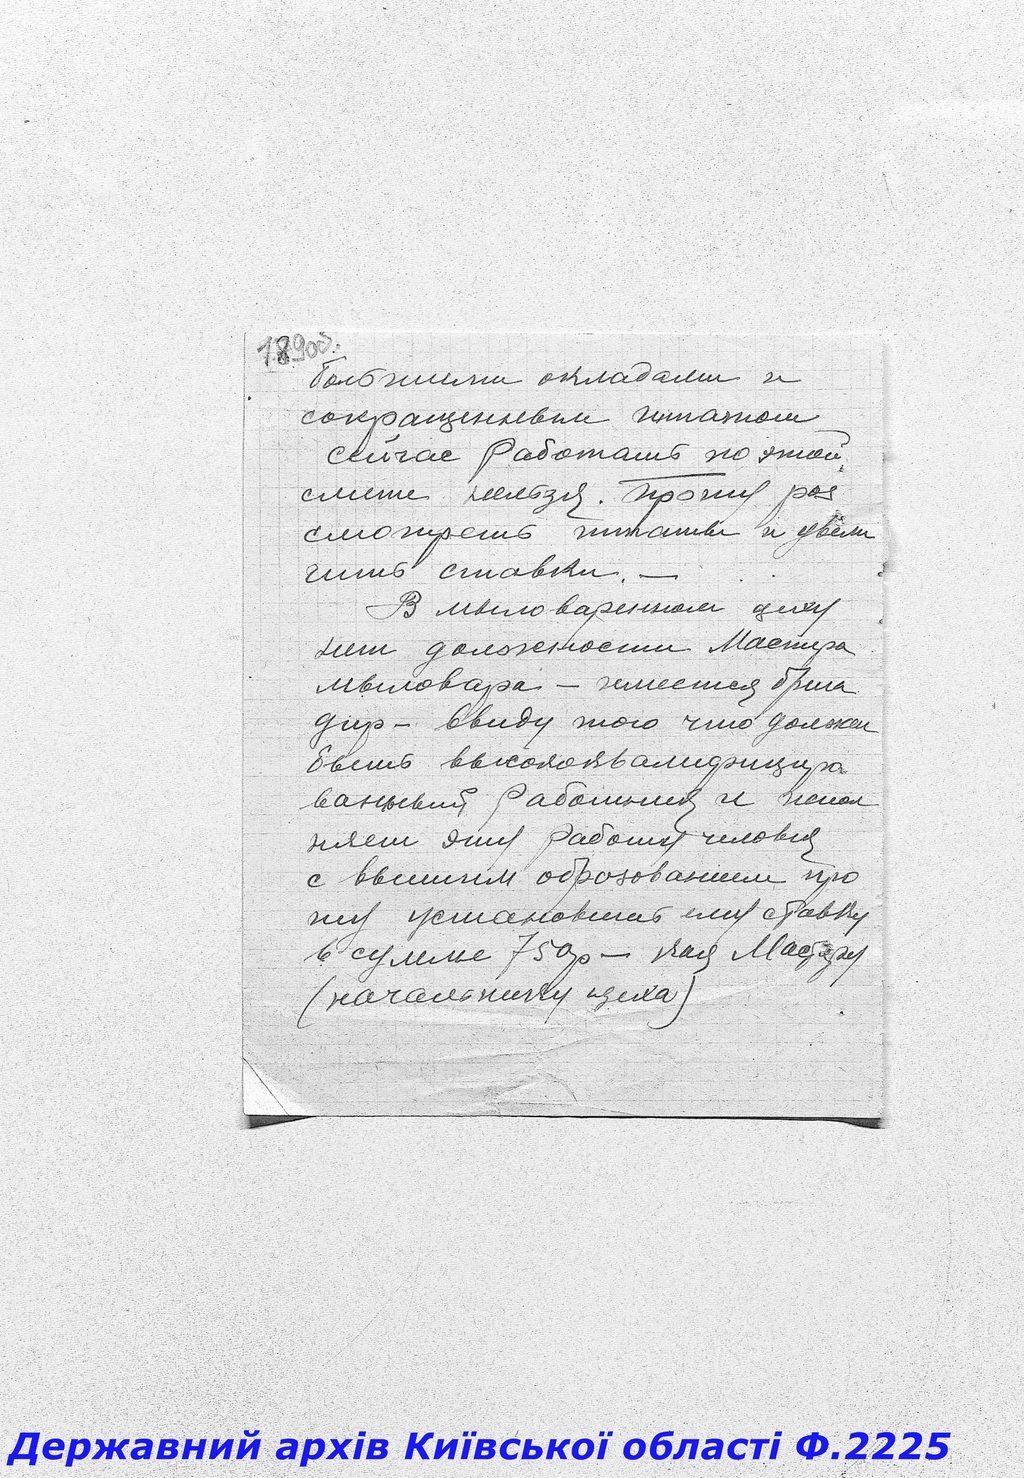 189об.
большими окладами и
сокращенным штатом
сейчас работать по этой
смете нельзя. Прошу рас
смотреть штаты и увели
чить ставки. —
В мыловаренном цеху
нет должности Мастера
мыловара — имеется брига
дир — ввиду того что должен
быть высококвалифициро
ванный работник и испол
няет эту работу человек
с высшим образованием про
шу установить ему ставку
в сумме 750р — как Мастеру
(начальнику цеха)
Державний архів Київської області Ф.2225